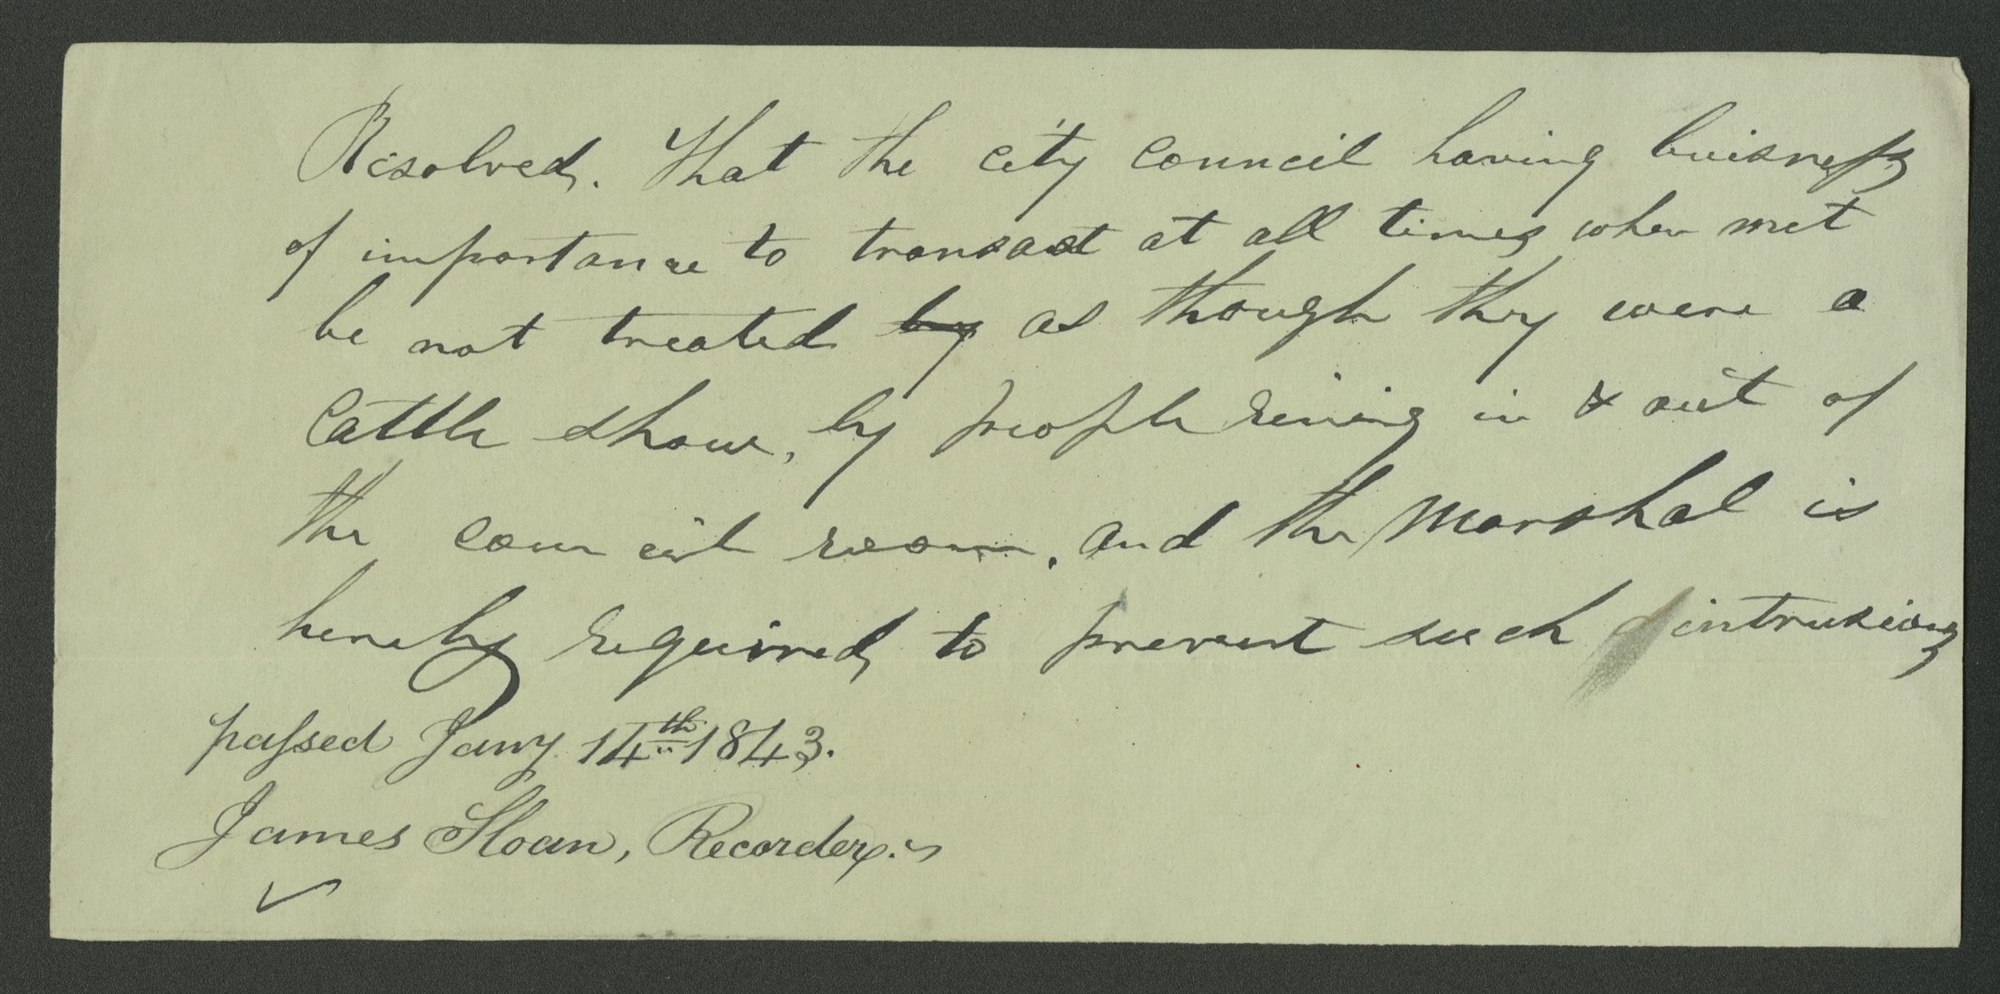 Resolved. That the city council having buisness
of importance to transact at all times when met
be not treated by as though they were a
Cattle show, by people runing in & out of
the council room. and the Marshal is
hereby required, to prevent such intrusions
passed Jany. 14th 1843.
James Sloan, Recorder.